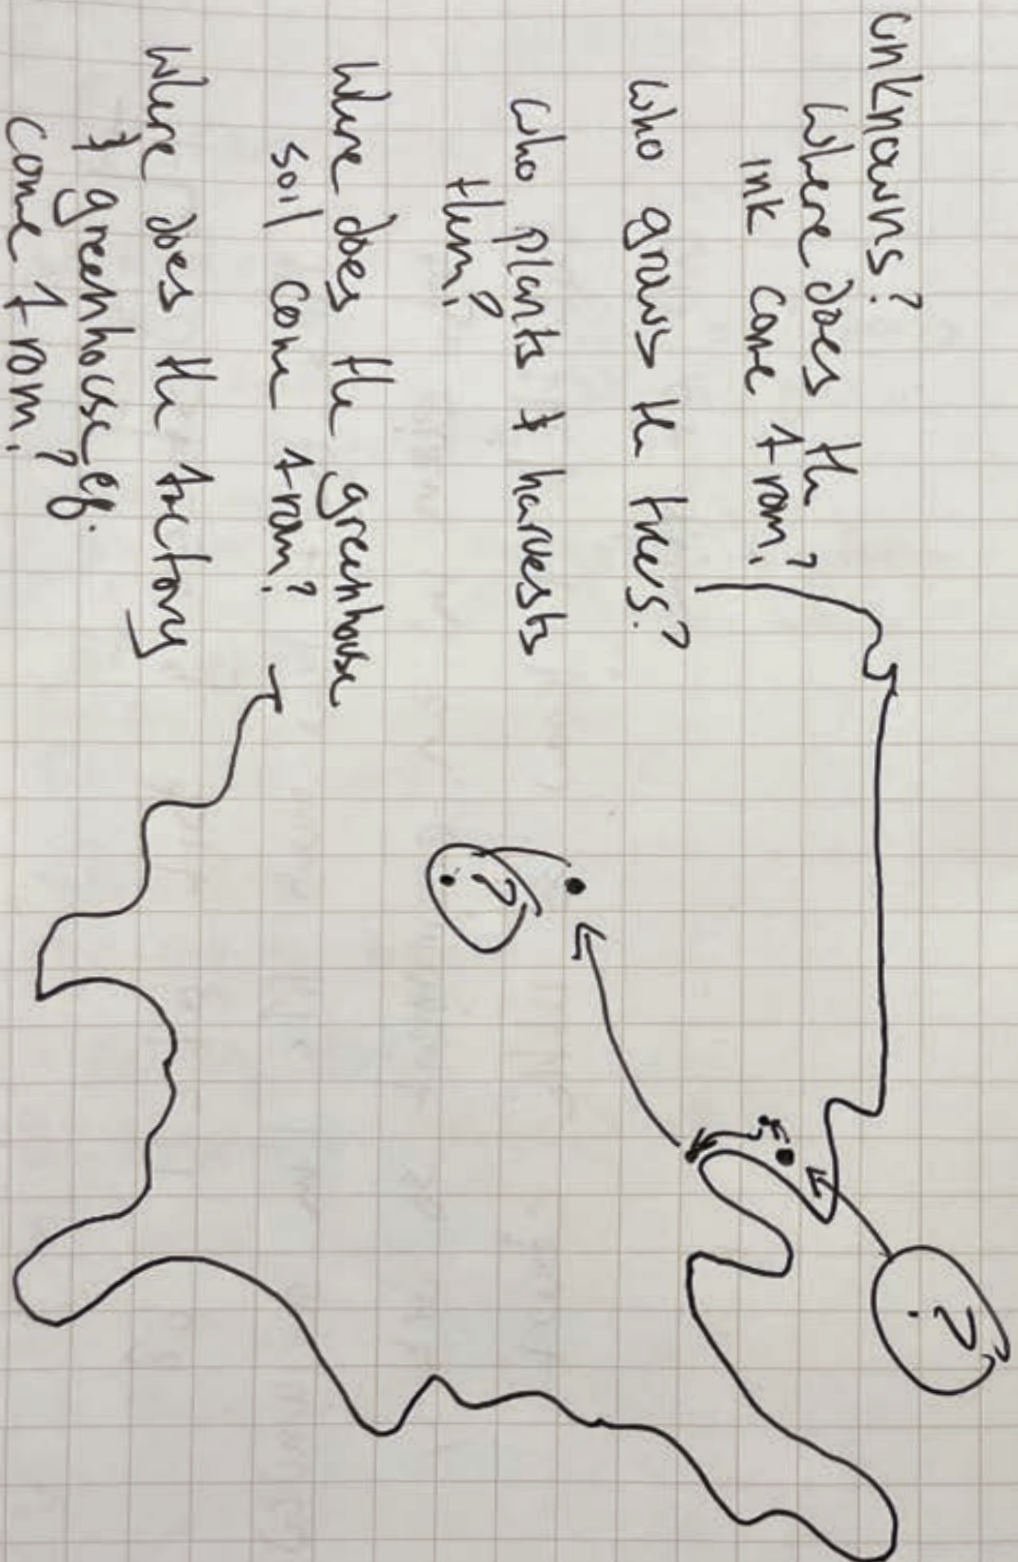 unknowns?
Where does the
ink come from?
Who grows the trees?
Who plants & harvests
them?
Where does the greenhouse
soil come from?
Where does the factory
& greenhouse eq.
come from?
?
?